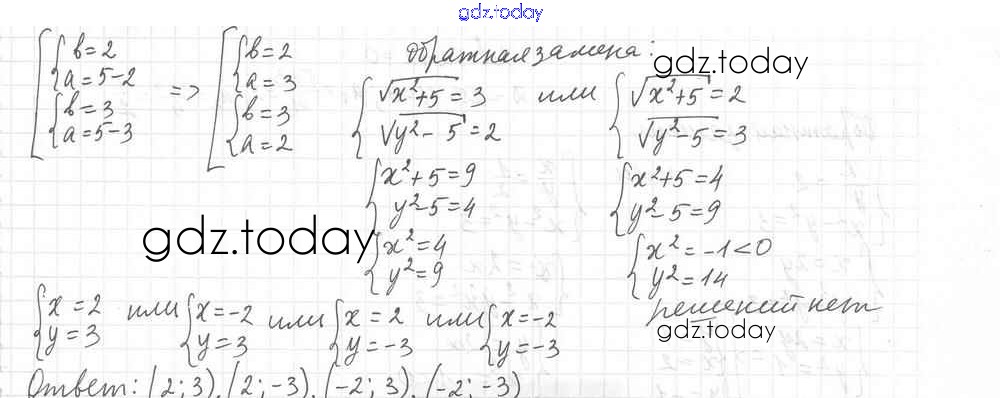 gdz.today
[{b=2 a=5-2 {b=3 a=5-3 => [{b=2 a=3 {b=3 a=2
Обратная замена:
gdz.today
{√x²+5=3 √y²-5=2 или {√x²+5=2 √y²-5=3
{x²+5=9 y²-5=4 {x²+5=4 y²-5=9
gdz.today
{x²=4 y²=9 {x²=-1<0 y²=14
решений нет
gdz.today
{x=2 y=3 или {x=-2 y=3 или {x=2 y=-3 или {x=-2 y=-3
Ответ: (2;3), (2;-3), (-2;3), (-2;-3)